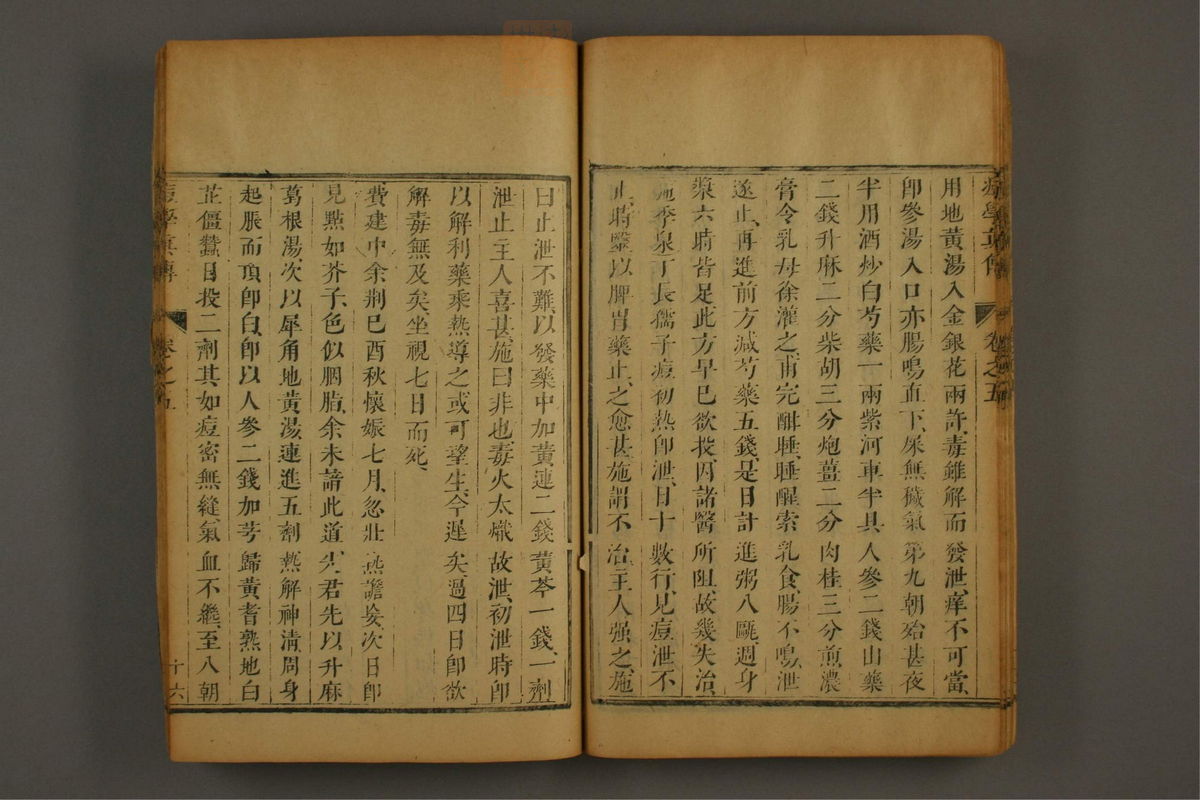 痘學真傳 卷之五
用地黃湯入金銀花兩許毒雖解而發泄痒不可當
卽參湯入口亦腸鳴直下屎無穢氣第九朝殆甚夜
半用酒炒白芍藥一兩紫河車半具人參二錢山藥
二錢升麻二分柴胡三分炮薑二分肉桂三分煎濃
膏令乳母徐灌之甫完酣睡睡醒索乳食腸不鳴泄
遂止再進前方減芍藥五錢是日計進粥八甌週身
漿六時皆足此方早已欲投因諸醫所阻故幾失治
施季泉丁長孺子痘初熱卽泄日十數行見痘泄不
止時醫以脾胃藥止之愈甚施謂不治主人强之施
曰止泄不難以發藥中加黃連二錢黃芩一錢一劑
泄止主人喜甚施曰非也毒火太熾故泄初泄時卽
以解利藥乘熱導之或可望生今遲矣過四日卽欲
解毒無及矣坐視七日而死
費建中余荆巳酉秋懷娠七月忽壯熱譫妄次日卽
見點如芥子色似胭脂余未諳此道先君先以升麻
葛根湯次以犀角地黃湯連進五劑熱解神淸周身
起脹而頂卽白卽以人參二錢加芎歸黃耆熟地白
芷僵蠶日投二劑其如痘密無縫氣血不繼至八朝
痘學真傳 卷之五 十六